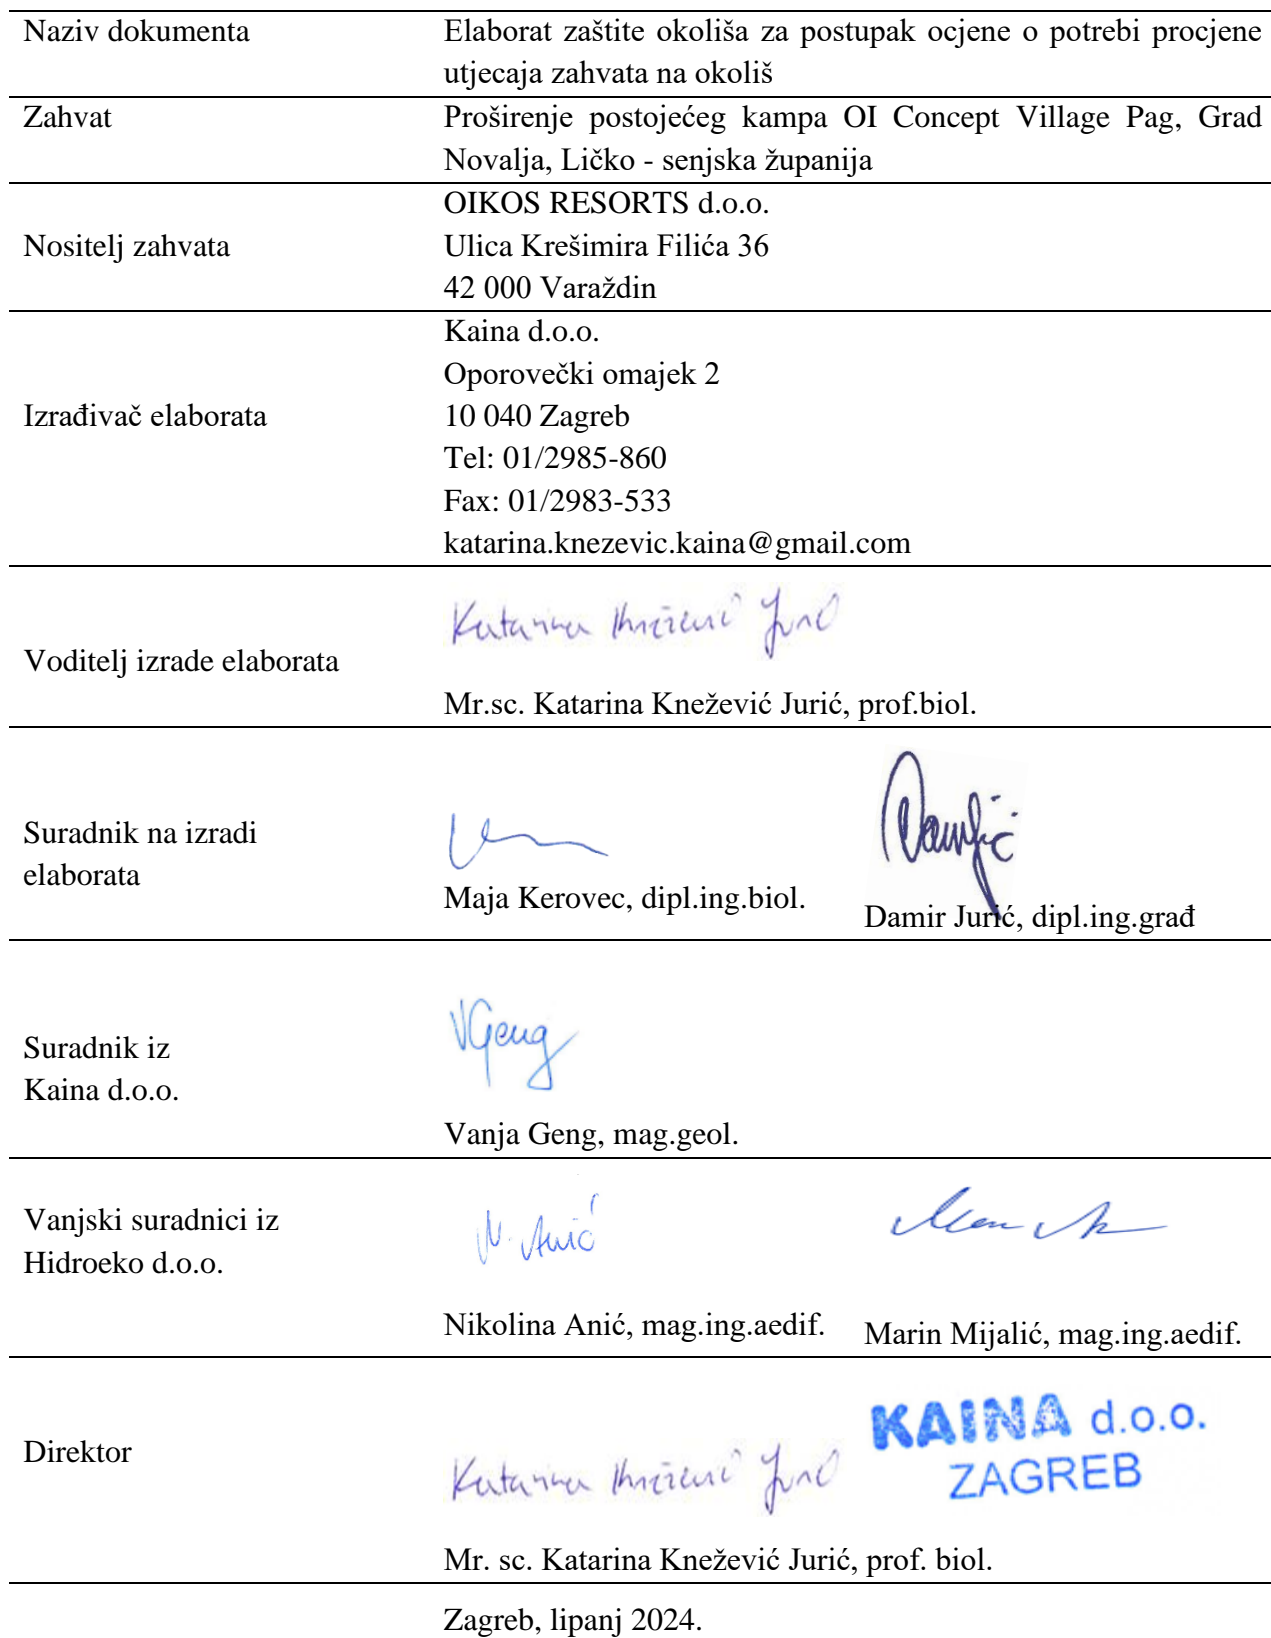 Naziv dokumenta
Elaborat zaštite okoliša za postupak ocjene o potrebi procjene
utjecaja zahvata na okoliš
Zahvat
Proširenje postojećeg kampa OI Concept Village Pag, Grad
Novalja, Ličko - senjska županija
Nositelj zahvata
OIKOS RESORTS d.o.o.
Ulica Krešimira Filića 36
42 000 Varaždin
Izrađivač elaborata
Kaina d.o.o.
Oporovečki omajek 2
10 040 Zagreb
Tel: 01/2985-860
Fax: 01/2983-533
katarina.knezevic.kaina@gmail.com
Voditelj izrade elaborata
Katarina Knežević Jurić
Mr.sc. Katarina Knežević Jurić, prof.biol.
Suradnik na izradi
elaborata
Maja Kerovec, dipl.ing.biol.
Damir Jurić, dipl.ing.građ
Suradnik iz
Kaina d.o.o.
VGeng
Vanja Geng, mag.geol.
Vanjski suradnici iz
Hidroeko d.o.o.
N. Anić
Nikolina Anić, mag.ing.aedif.
Marin Mijalić, mag.ing.aedif.
Direktor
Katarina Knežević Jurić
KAINA d.o.o.
ZAGREB
Mr. sc. Katarina Knežević Jurić, prof. biol.
Zagreb, lipanj 2024.